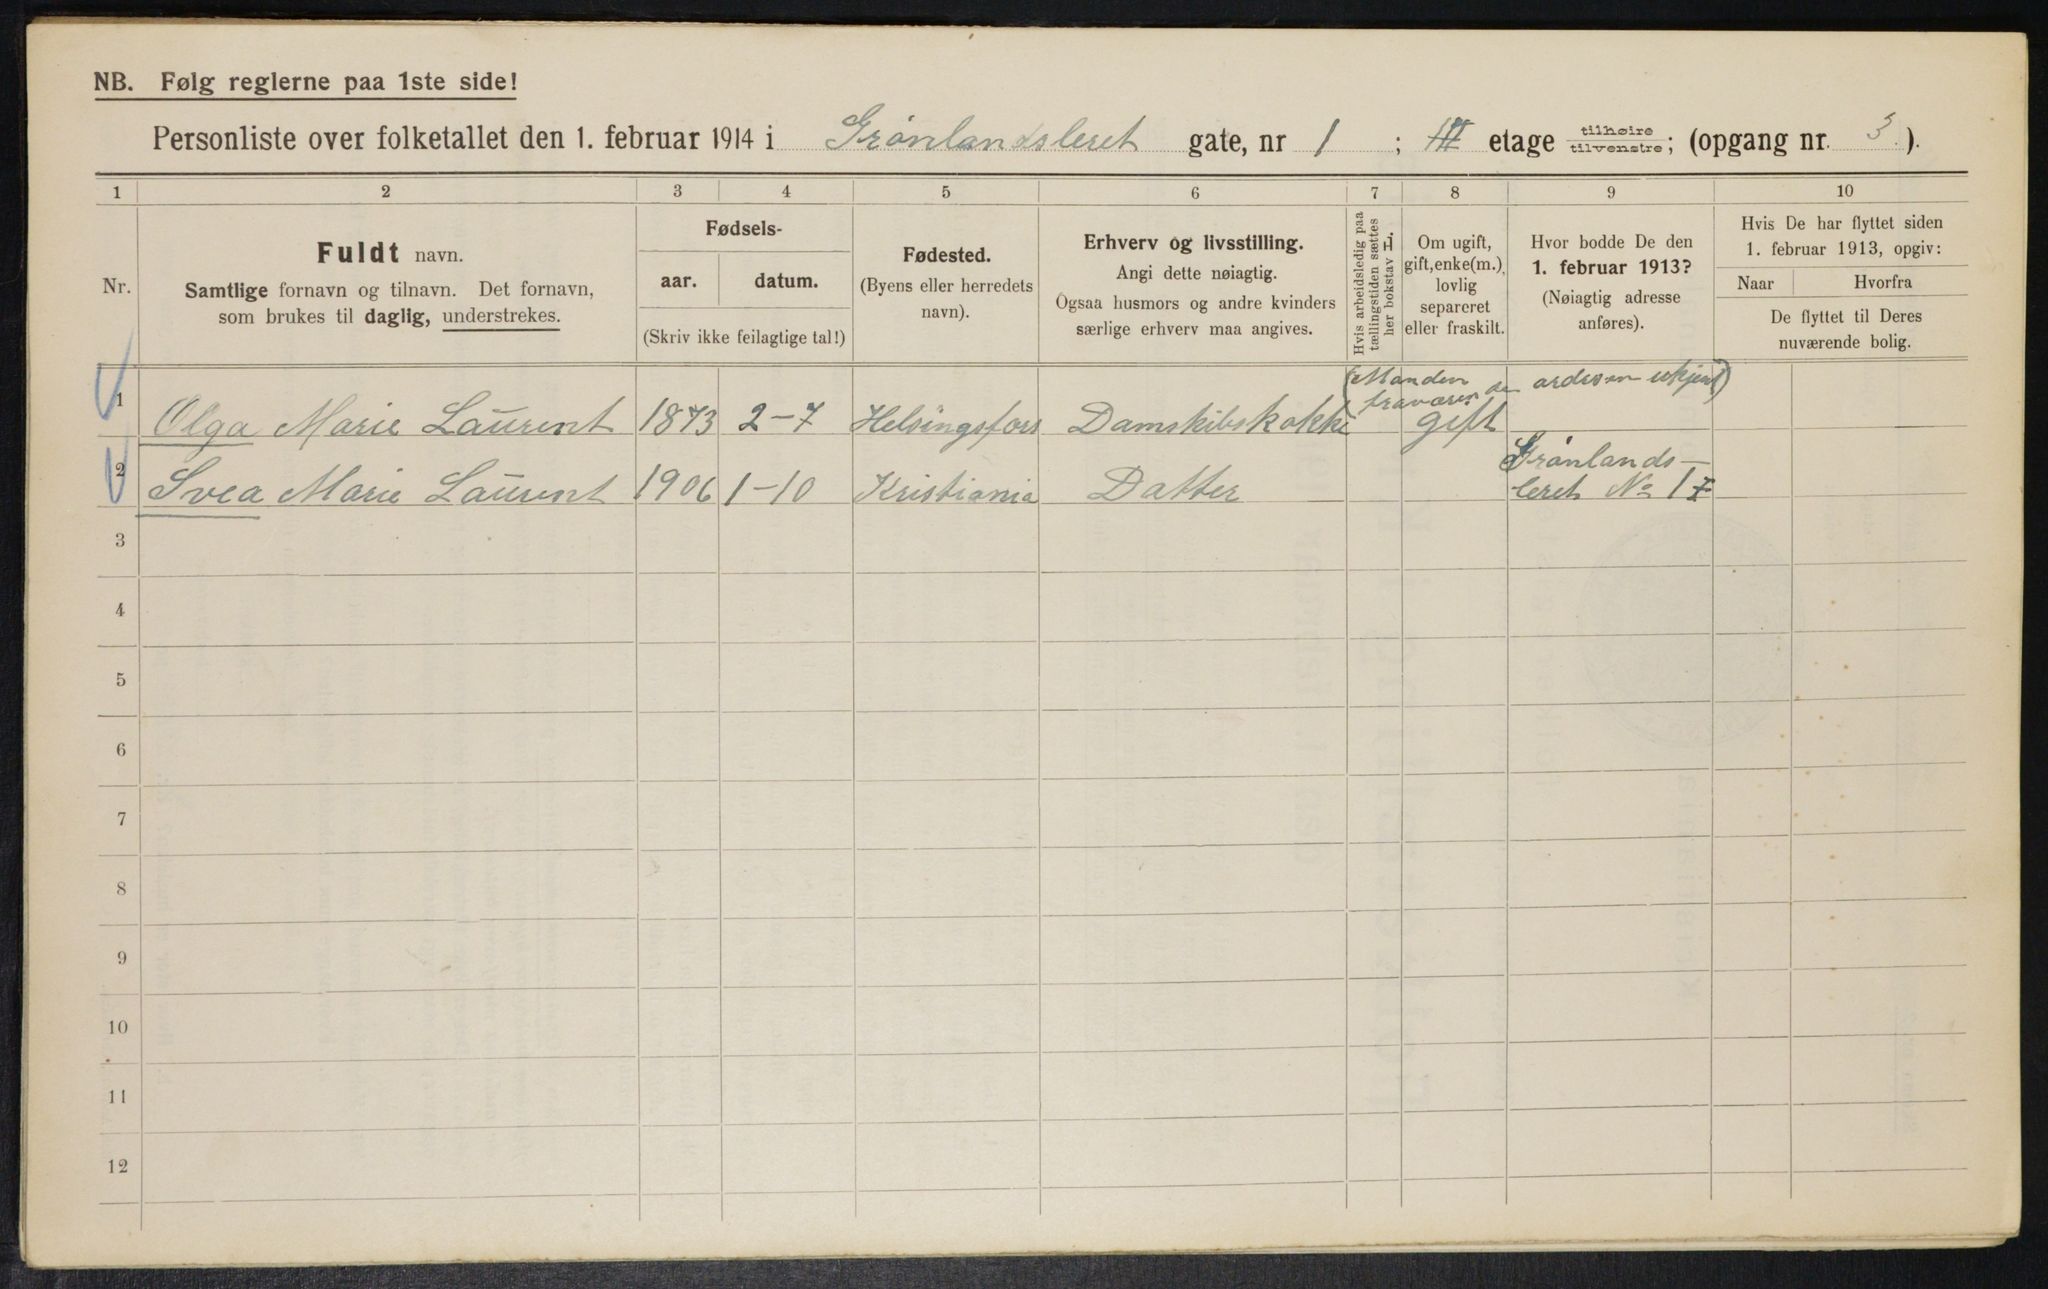 NB. Følg reglerne paa 1ste side!
Personliste over folketallet den 1. februar 1914 i Grønlandsleret gate, nr 1 ; III etage tilhøire tilvenstre; (opgang nr. 3 ).
1 2 3 4 5 6 7 8 9 10
Nr.
Fuldt navn.
Samtlige fornavn og tilnavn. Det fornavn,
som brukes til daglig, understrekes.
Fødsels-
aar. datum.
(Skriv ikke feilagtige tal!)
Fødested.
(Byens eller herredets
navn).
Erhverv og livsstilling.
Angi dette nøiagtig.
Ogsaa husmors og andre kvinders
særlige erhverv maa angives.
Hvis arbeidsledig paa
tællingstiden sættes
her bokstav L.
Om ugift,
gift, enke(m.),
lovlig
separeret
eller fraskilt.
Hvor bodde De den
1. februar 1913?
(Nøiagtig adresse
anføres).
Hvis De har flyttet siden
1. februar 1913, opgiv:
Naar Hvorfra
De flyttet til Deres
nuværende bolig.
(Manden ukjent)
1 Olga Marie Laurent 1873 2-7 Helsingsfors Damskibskokke gift
2 Svea Marie Laurent 1906 1-10 Kristiania Datter Grønlands-
leret No 1
3
4
5
6
7
8
9
10
11
12